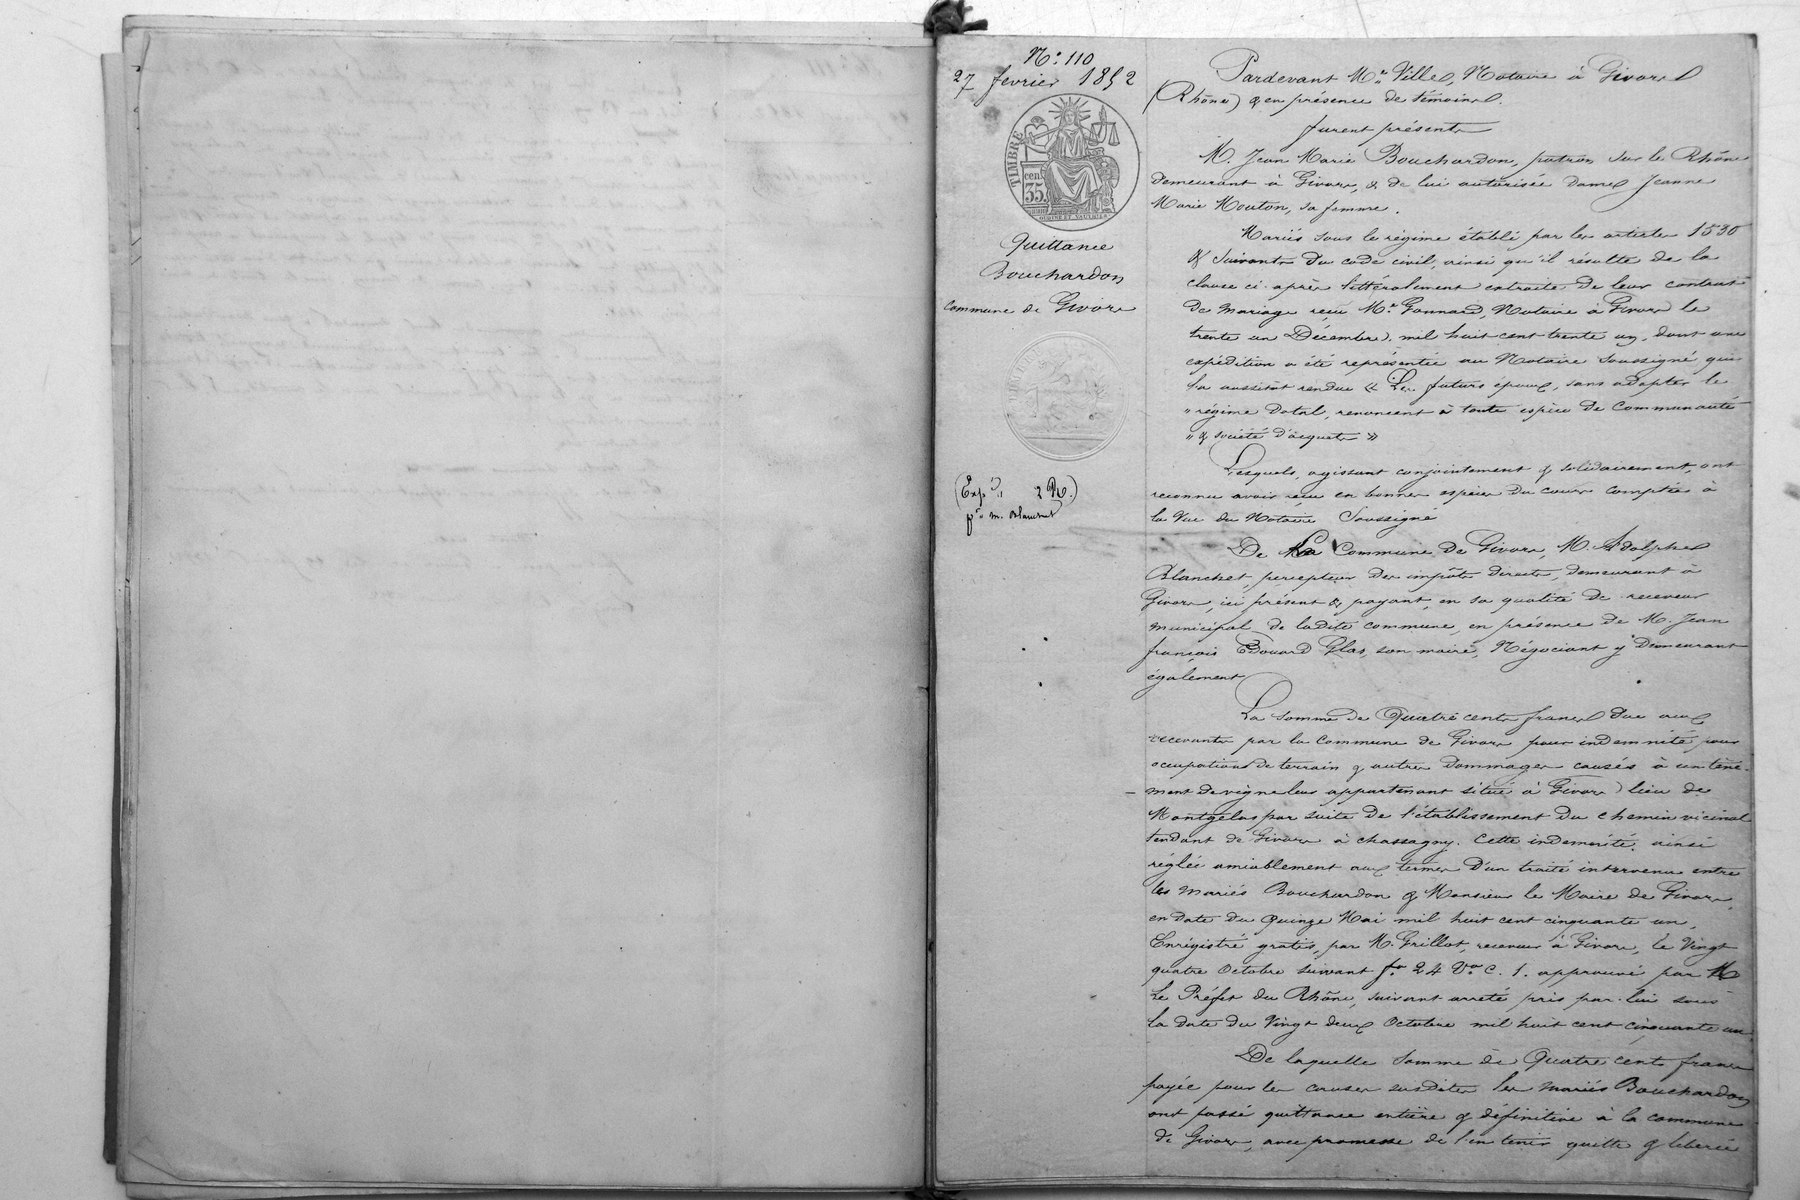 N.° 110
27 fevrier 1852
TIMBRE
cen.
35.
OUDINÉ ET VAUTHIER
Quittance
Bouchardon
commune de Givors
(Exp. 2 )
pr. m. Blanchet
Pardevant Me. Ville, Notaire à Givors
(Rhône) & en présence de témoins.
furent présents
M. Jean Marie Bouchardon, patron sur le Rhône
demeurant à Givors, & de lui autorisée dame Jeanne
Marie Mouton, sa femme.
Mariés sous le régime établi par les articles 1530
& suivants du code civil, ainsi qu'il résulte de la
clause ci-après littéralement extraite de leur contrat
de mariage reçu Me. Gonnard, Notaire à Givors le
trente un Décembre mil huit cent trente un, dont une
expédition a été représentée au Notaire soussigné qui
l'a aussitôt rendue « Les futurs époux, sans adopter le
" régime dotal, renoncent à toute espèce de communauté
" & société d'acquets »
Lesquels, agissant conjointement & solidairement, ont
reconnu avoir reçu en bonnes espèces du cours comptées à
la vue du Notaire soussigné
De la Commune de Givors, M. Adolphe
Blanchet, percepteur des impôts directs, demeurant à
Givors, ici présent & payant, en sa qualité de receveur
municipal de ladite commune, en présence de M. Jean
françois Edouard Glas, son maire, Négociant y demeurant
également
La somme de Quatre cents francs due aux
recevants par la Commune de Givors pour indemnité pour
occupation de terrain & autres dommages causés à un téne-
ment de vigne leur appartenant situé à Givors lieu de
Montgelas par suite de l'établissement du chemin vicinal
tendant de Givors à chassagny. Cette indemnité ainsi
réglée amiablement aux termes d'un traité intervenu entre
les mariés Bouchardon & Monsieur le Maire de Givors,
en date du quinze Mai mil huit cent cinquante un,
Enrégistré gratis, par M. Grillot, receveur à Givors, le Vingt
quatre Octobre suivant fo. 24 Vo. C. 1. approuvé par M
Le Préfet du Rhône, suivant arreté pris par lui sous
la date du Vingt deux Octobre mil huit cent cinquante un
De laquelle somme de Quatre cents francs
payée pour les causes susdites les mariés Bouchardon
ont passé quittance entière & définitive à la commune
de Givors, avec promesse de l'en tenir quitte & libérée